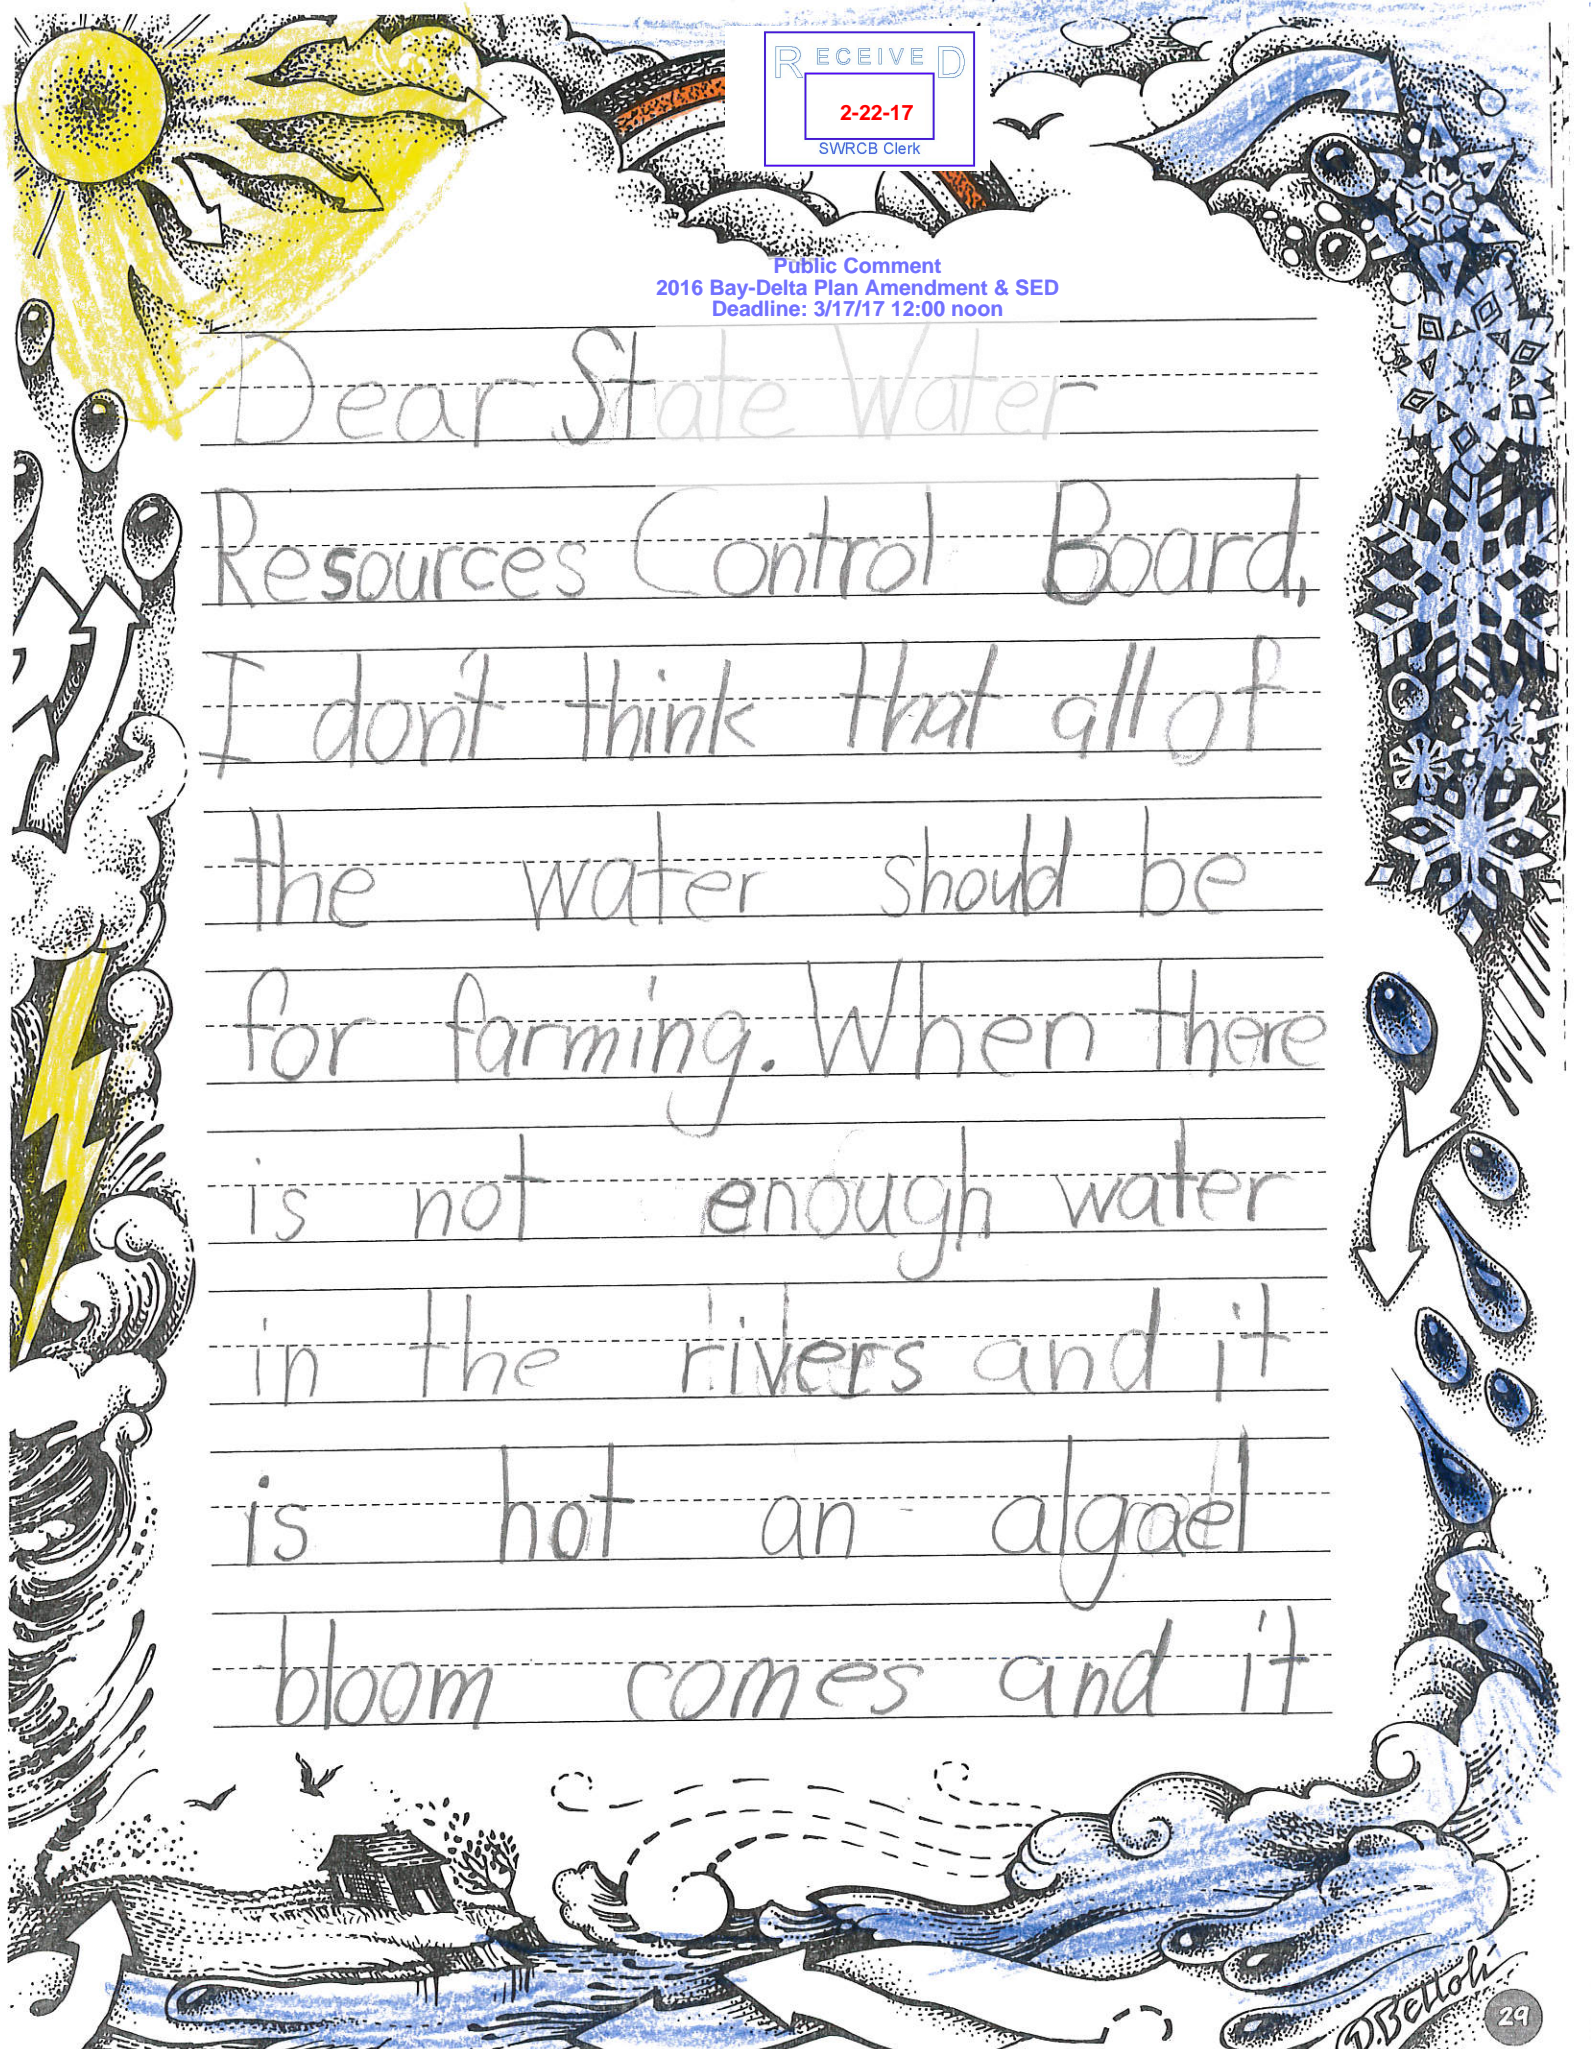 RECEIVED
2-22-17
SWRCB Clerk
Public Comment
2016 Bay-Delta Plan Amendment & SED
Deadline: 3/17/17 12:00 noon
Dear State Water
Resources Control Board,
I don't think that all of
the water should be
for farming. When there
is not enough water
in the rivers and it
is hot an algael
bloom comes and it
D.Bettoli
29